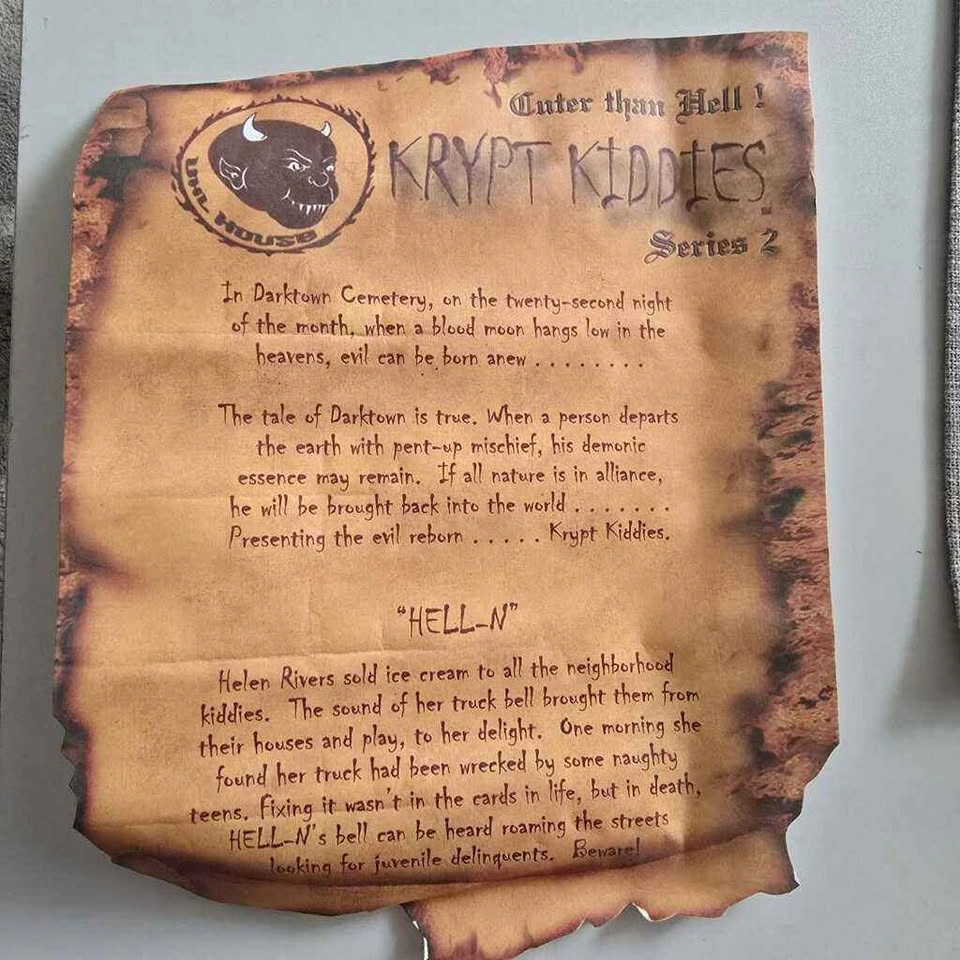 Cuter than Hell !
UHL HOUSE
KRYPT KIDDIES
Series 2
In Darktown Cemetery, on the twenty-second night
of the month, when a blood moon hangs low in the
heavens, evil can be born anew . . . . . . . .
The tale of Darktown is true. When a person departs
the earth with pent-up mischief, his demonic
essence may remain. If all nature is in alliance,
he will be brought back into the world . . . . . . .
Presenting the evil reborn . . . . . Krypt Kiddies.
"HELL-N"
Helen Rivers sold ice cream to all the neighborhood
kiddies. The sound of her truck bell brought them from
their houses and play, to her delight. One morning she
found her truck had been wrecked by some naughty
teens. Fixing it wasn't in the cards in life, but in death,
HELL-N's bell can be heard roaming the streets
looking for juvenile delinquents. Beware!